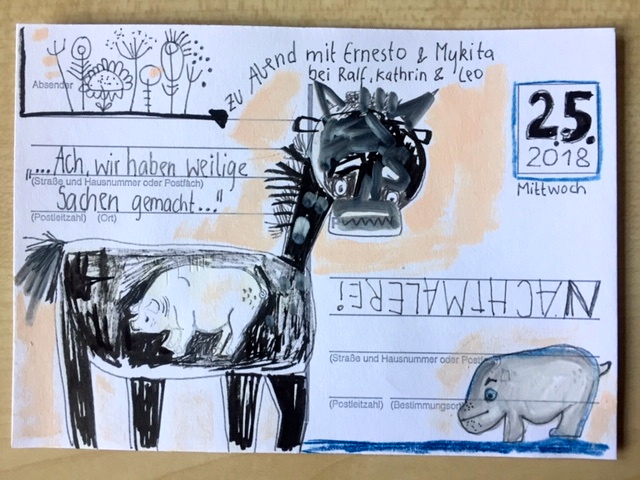 Absender
zu Abend mit Ernesto & Mykita
bei Ralf, Kathrin & Leo
2.5.
2018
Mittwoch
"...Ach, wir haben weilige
(Straße und Hausnummer oder Postfach)
Sachen gemacht..."
(Postleitzahl) (Ort)
NACHTMALEREi
(Straße und Hausnummer oder Postf
(Postleitzahl) (Bestimmungsort